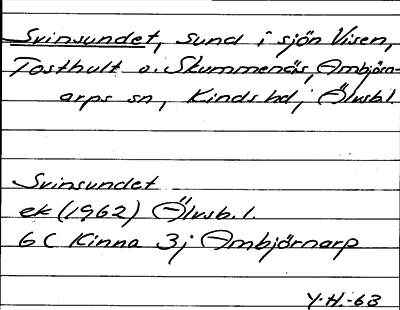 Svinsundet, sund i sjön Visen,
Tosthult o. Skummenäs, Ambjörn-
arps sn, Kinds hd, Älvsb.l.
Svinsundet
ek (1962) Älvsb. l.
6 C Kinna 3j Ambjörnarp
Y.H.-63